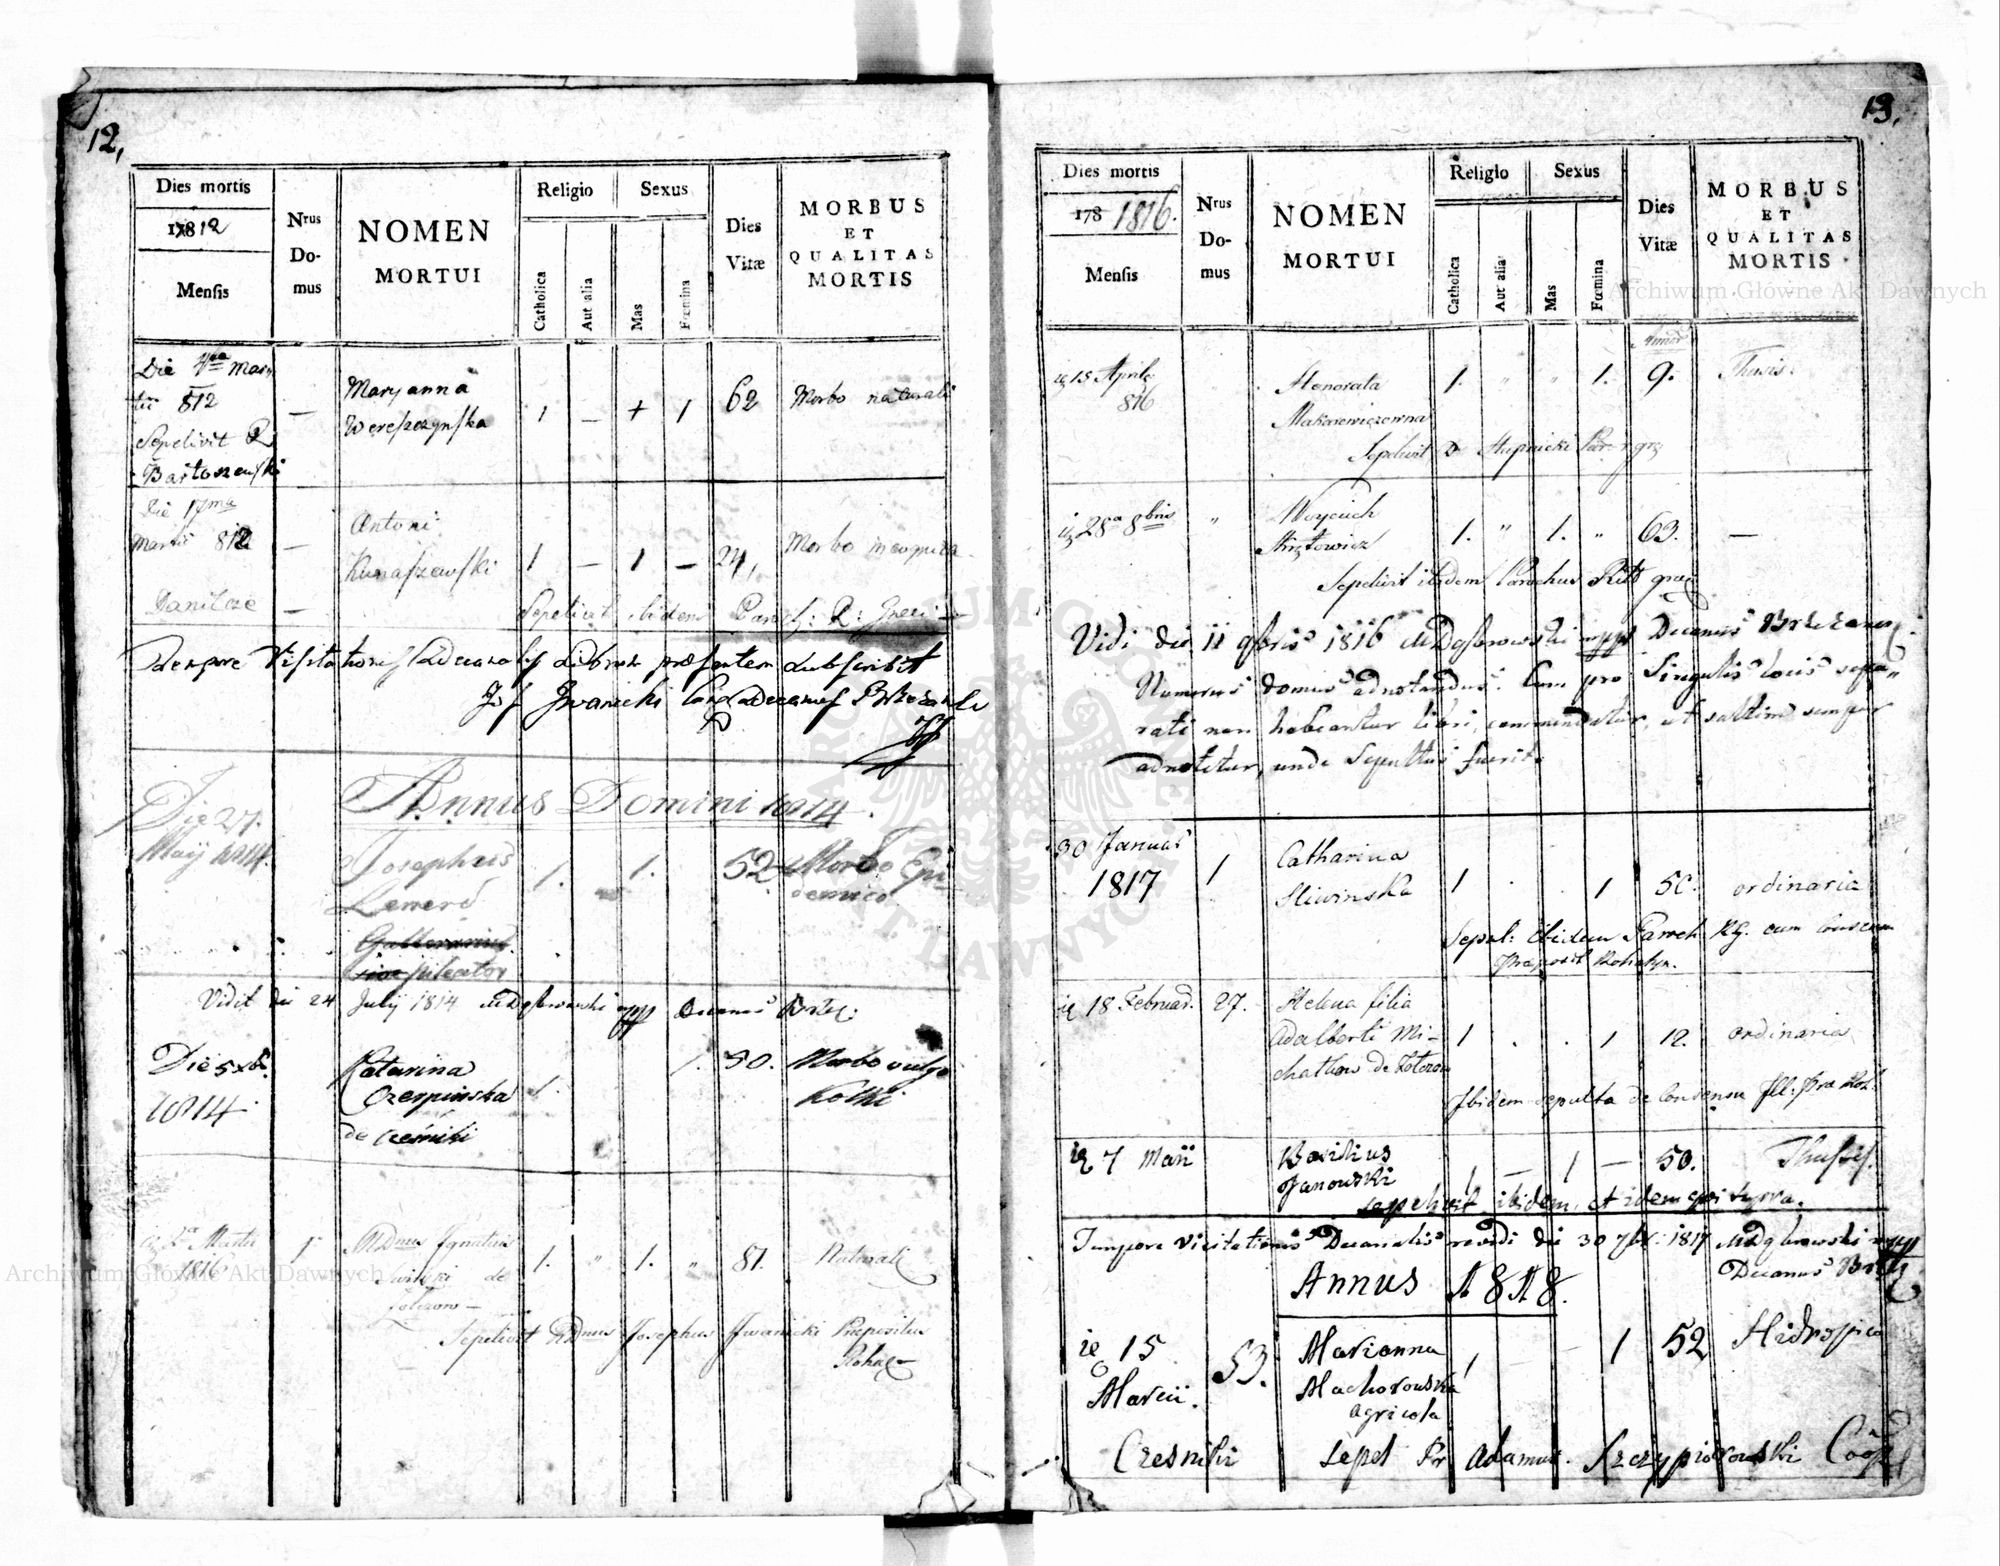 12,
Dies mortis
1812
Mensis
Nrus
Do-
mus
NOMEN
MORTUI
Religio
Catholica
Aut alia
Sexus
Mas
Fœmina
Dies
Vitæ
MORBUS
ET
QUALITAS
MORTIS
Die Mar
tii 812
Sepelivit
Bartoszewski
—
Maryanna
Wereszczynska
1 — + 1
62
Morbo naturali
Die 17ma
Martii 812
Danilcze
—
Antoni
Kunaszewski
1 — 1 —
24,
Morbo incognito
Sepelivit ibidem Paroch: R: Graeci
Tempore Visitationis Decanalis Librum praesentem subscribit
Jos Iwanicki Decanus Brzezan
Annus Domini 1814.
Die 27.
Maij 1814.
Josephus
Lenerd
pileator
1. 1.
52
Morbo Epi-
demico
Vidit die 24 Julij 1814 Decanus Brzez:
Die 5 xbr.
1814.
Katarina
Czerpinska
de Czesniki
1. 1.
50.
Morbo vulgo
Kolki
Martii
1816
1
Ignatius
de
1. " 1. "
81.
Naturali
Sepelivit Rdnus Josephus Iwanicki Praepositus
Rohat
13.
Dies mortis
178 1816.
Mensis
Nrus
Do-
mus
NOMEN
MORTUI
Religio
Catholica
Aut alia
Sexus
Mas
Fœmina
Dies
Vitæ
MORBUS
ET
QUALITAS
MORTIS
15 Aprilis
816
Honorata
Makarewiczowna
1. " " 1.
9.
Thisis.
Sepelivit Stupnicki
28a 8bris
"
Woyciech
1. " 1. "
63.
—
Sepelivit ibidem Parochus Ritus graeci
Vidi die 11 9bris 1816 Decanus Brzezanen
Numerus domus adnotandus. Cum pro singulis locis sepa-
rati non habeantur libri, commendatur, ut saltim semper
adnotetur, unde Sepultus fuerit.
30 Januar
1817
1
Catharina
Sliwinska
1 . . 1
50.
ordinaria
Sepul: Ibidem Paroch RG. cum consensu
Praeposit Rohatyn.
18 Februar.
27.
Helena filia
Adalberti Mi-
chatkow de
1 . . 1
12.
ordinaria
Ibidem sepulta de Consensu
7 Maii
Basilius
Janowski
1 — 1 —
50.
Thusis.
sepelivit ibidem, et idem qui supra.
Tempore visitationis Decanalis revidi die 30 7br: 1817
Decanus Brzez
Annus 1818.
15
Marcii.
53.
Marianna
Machorowska
agricola
1 — — 1
52
Hidropica
Czesniki sepel Pr Adamus Szczypiorowski Coop
Archiwum Główne Akt Dawnych
Archiwum Główne Akt Dawnych